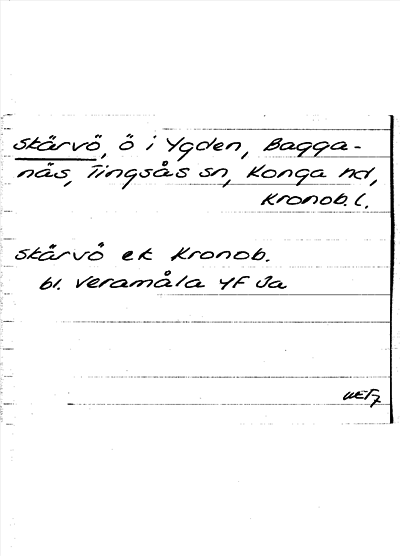 Skärvö, ö i Ygden, Bagga-
näs, Tingsås sn, Konga hd,
Kronob. l.
Skärvö ek Kronob.
bl. Veramåla 4F Ja